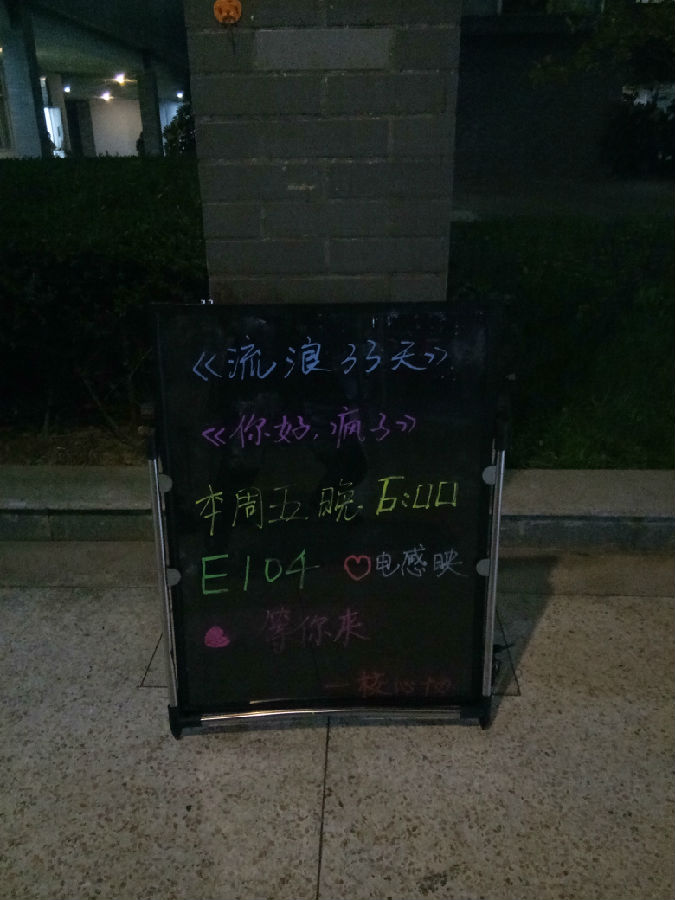 《流浪33天》
《你好,疯子》
本周五晚 6:00
E104 电感映
等你来